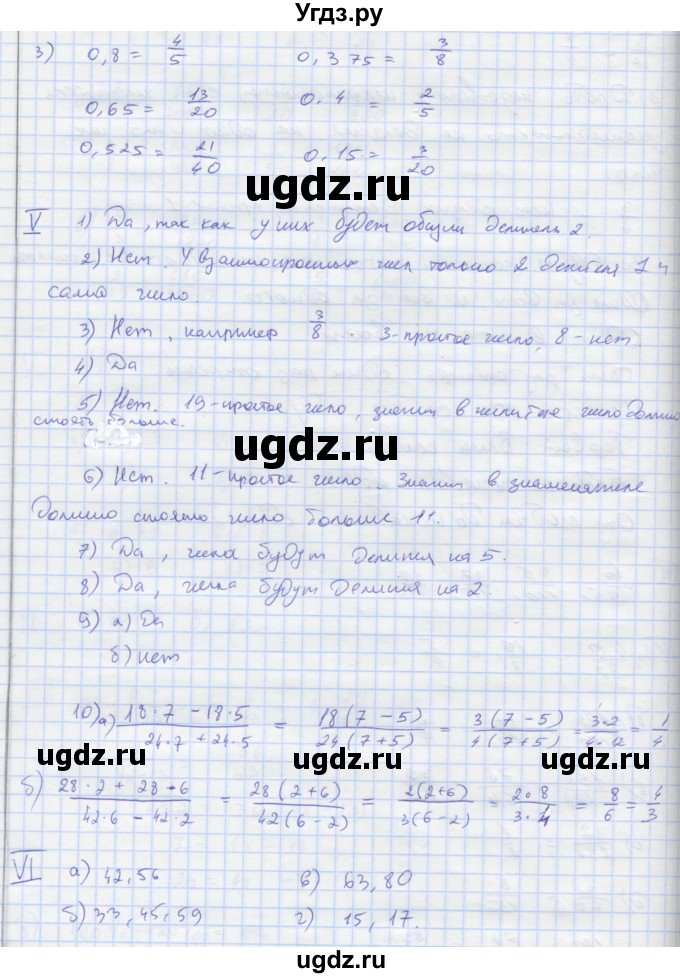 Угдз.ру
3) 0,8 = 4/5 0,375 = 3/8
0,65 = 13/20 0.4 = 2/5
0,525 = 21/40 0,15 = 3/20
ugdz.ru ugdz.ru
V 1) Да, так как у них будет общий делитель 2.
2) Нет. У взаимопростых чисел только 2 делителя 1 и
само число.
ugdz.ru
3) Нет, например 3/8. 3-простое число, 8-нет.
4) Да
5) Нет. 19-простое число, значит в числителе число должно
стоять больше.
ugdz.ru
6) Нет. 11-простое число. Значит в знаменателе
должно стоять число больше 11.
7) Да, числа будут делится на 5.
ugdz.ru ugdz.ru
8) Да, числа будут делится на 2.
9) а) Да
б) нет
10) а) (18·7 – 18·5)/(24·7 + 24·5) = 18(7 – 5)/24(7+5) = 3(7 – 5)/4(7+5) = 3·2/4·12 = 1/4
ugdz.ru ugdz.ru
б) (28·2 + 28·6)/(42·6 – 42·2) = 28(2+6)/42(6–2) = 2(2+6)/3(6–2) = 2·8/3·4 = 8/6 = 4/3
VI а) 42,56 в) 63,80
ugdz.ru
б) 33,45,59 г) 15, 17.
ugdz.ru ugdz.ru